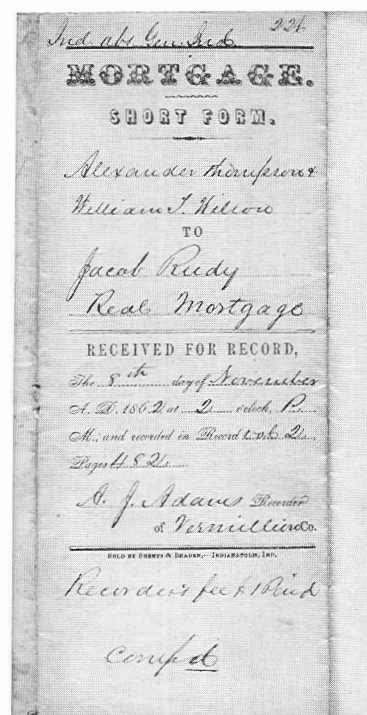 226
Ind. abs Gen. Ind.
MORTGAGE.
SHORT FORM.
Alexander Thompson &
William T. Wilson
TO
Jacob Rudy
Real Mortgage
RECEIVED FOR RECORD,
The 8th day of November
A. D. 1862 at 2 o'clock, P.
M.; and recorded in Record Vol 2,
Pages 482.
A. J. Adams Recorder
of Vermillion Co.
SOLD BY SHEETS & BRADEN, INDIANAPOLIS, IND.
Recorder's fee $1 Paid
comp'd